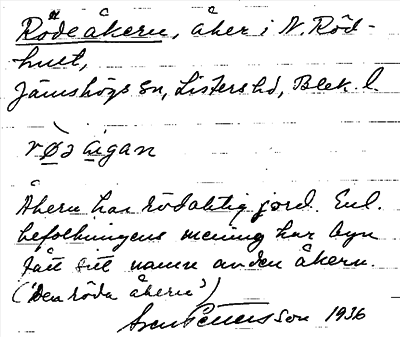 Rödeåkern, åker i N. Röd-
hult,
Jämshögs sn, Listers hd, Blek. l.
rø̀ə aigan
Åkern har rödaktig jord. Enl.
befolkningens mening har byn
fått sitt namn av den åkern.
("Den röda åkern")
Sven Petersson 1936